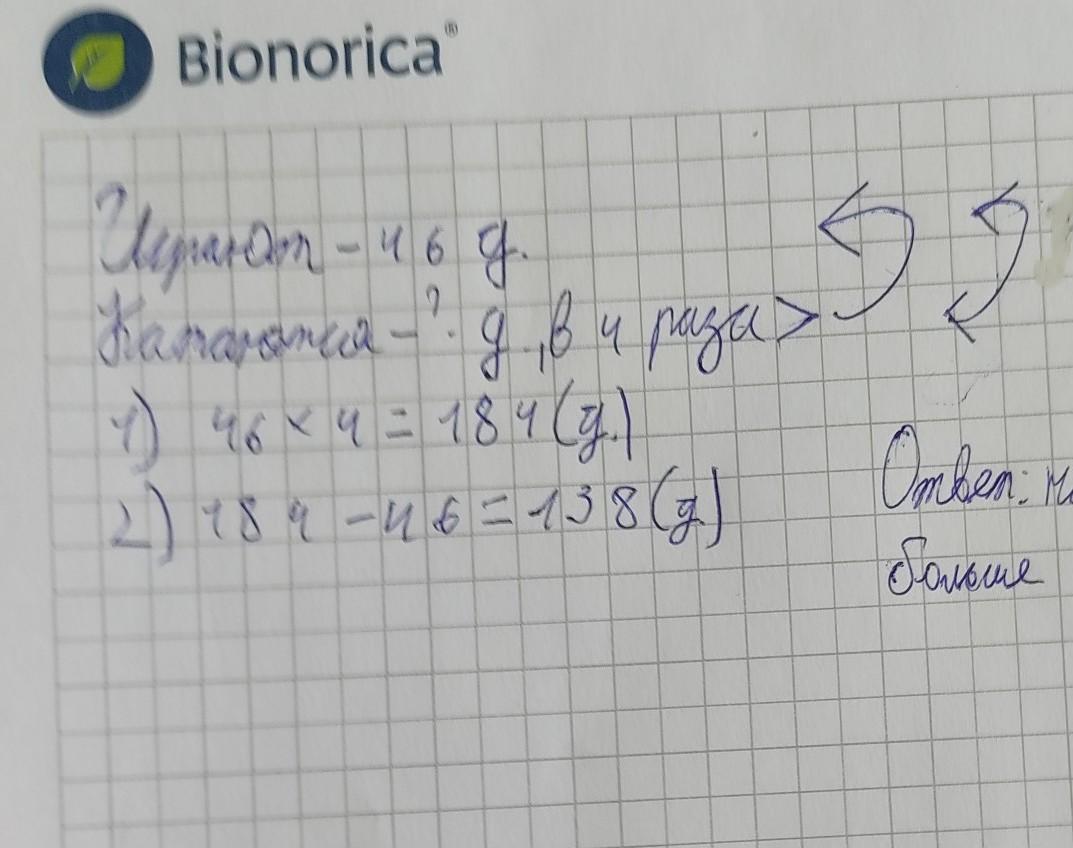 Bionorica®
Играют - 46 д.
Катаются - ? д., в 4 раза >
1) 46 × 4 = 184 (д.)
2) 184 - 46 = 138 (д.)
Ответ: на
больше